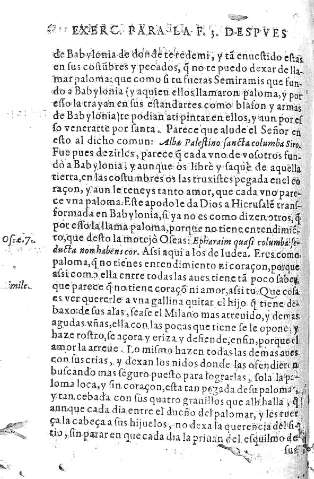 EXERC. PARA LA F. 3. DESPVES
de Babylonia de donde te redemi, y tã enuestido estas
en sus costũbres y pecados, q̃ no te puedo dexar de lla-
mar paloma: que como si tu fueras Semiramis que fun-
do a Babylonia (y a quien ellos llamaron paloma, y por
esso la trayan en sus estandartes como blason y armas
de Babylonia) te podian a ti pintar en ellos, y aun por es
so venerarte por santa. Parece que alude el Señor en
esto al dicho comun: Albæ Palestino sancta columba Siro.
Fue pues dezilles, parece q̃ cada vno de vosotros fun-
dò a Babylonia; y aunque os librè y saquè de aquella
tierra, en las costumbres os la truxistes pegada en el co
raçon, y aun le teneys tanto amor, que cada vno pare-
ce vna paloma. Este apodo le da Dios a Hierusalẽ trans-
formada en Babylonia, si ya no es como dizen otros, q̃
por esso la llama paloma, porque no tiene entendimiẽ-
Osiæ. 7. to, que desto la motejò Oseas: Ephraim quasi columba se-
ducta non habens cor. Assi aqui a los de Iudea. Eres como
paloma, q̃ no tienes entendimiento ni coraçon, porque
assi como ella entre todas las aues tiene tã poco saber,
que parece q̃ no tiene coraçõ ni amor, assi tu. Que cosa
simile. es ver quererle a vna gallina quitar el hijo q̃ tiene de-
baxo de sus alas, sease el Milano mas atreuido, y de mas
agudas vñas, ella con las pocas que tiene se le opone, y
haze rostro, se açora y eriza y defiende, en fin, porque el
amor la atreue. Lo mismo hazen todas las demas aues
con sus crias, y dexan los nidos donde las ofendieron
buscando mas seguro puesto para lograrlas, sola la pa-
loma loca, y sin coraçon, esta tan pegada de su paloma-,
y tan cebada con sus quatro granillos que alli halla, q̃
aunque cada dia entre el dueño del palomar, y les tuer
ça la cabeça a sus hijuelos, no dexa la querencia del si-
tio, sin parar en que cada dia la priuan del esquilmo de
sus